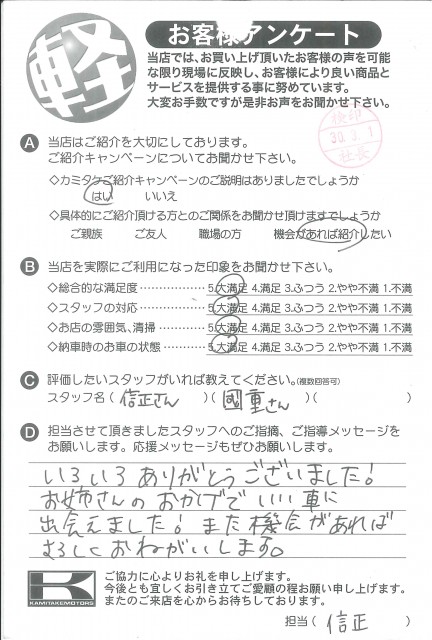 軽
お客様アンケート
当店では、お買い上げ頂いたお客様の声を可能
な限り現場に反映し、お客様により良い商品と
サービスを提供する事に努めています。
大変お手数ですが是非お声をお聞かせ下さい。
検印
30.3.1
社長
A 当店はご紹介を大切にしております。
ご紹介キャンペーンについてお聞かせ下さい。
◇カミタケご紹介キャンペーンのご説明はありましたでしょうか
はい いいえ
◇具体的にご紹介頂ける方とのご関係をお聞かせ頂けますでしょうか
ご親族 ご友人 職場の方 機会があれば紹介したい
B 当店を実際にご利用になった印象をお聞かせ下さい。
◇総合的な満足度 5.大満足 4.満足 3.ふつう 2.やや不満 1.不満
◇スタッフの対応 5.大満足 4.満足 3.ふつう 2.やや不満 1.不満
◇お店の雰囲気、清掃 5.大満足 4.満足 3.ふつう 2.やや不満 1.不満
◇納車時のお車の状態 5.大満足 4.満足 3.ふつう 2.やや不満 1.不満
C 評価したいスタッフがいれば教えてください。(複数回答可)
スタッフ名(信正さん)(國重さん)( )
D 担当させて頂きましたスタッフへのご指摘、ご指導メッセージを
お願いします。応援メッセージもぜひお願いします。
いろいろありがとうございました!
お姉さんのおかげでいい車に
出会えました!また機会があれば
よろしくおねがいします。
K
KAMITAKEMOTORS
ご協力に心よりお礼を申し上げます。
今後とも宜しくお引き立てご愛顧の程お願い申し上げます。
またのご来店を心からお待ちしております。
担当(信正)